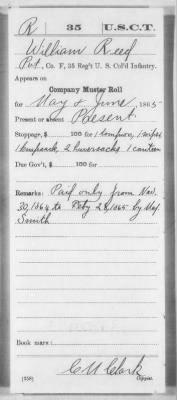 R 35 U.S.C.T.
William Reed
Pvt, Co. F, 35 Reg't U. S. Col'd Infantry.
Appears on
Company Muster Roll
for May & June, 1865
Present or absent Present
Stoppage, $ 100 for 1 tompion, 1 wiper
1 knapsack 2 haversacks 1 canteen
Due Gov't, $ 100 for
Remarks: Paid only from Nov.
30, 1864 to Feby 28, 1865 by Maj.
Smith
Book mark:
C U Clark
(358) Copyist.